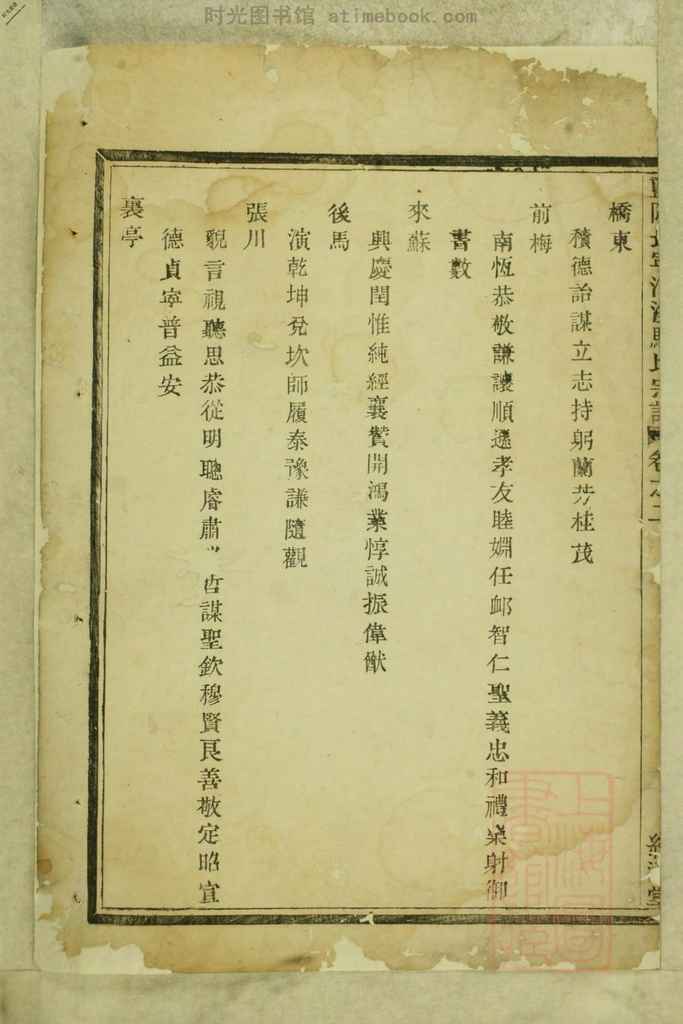 时光图书馆 atimebook.com
橋東
積德詒謀立志持躬蘭芳桂茂
前梅
南恆恭敬謙讓順遜孝友睦婣任卹智仁聖義忠和禮樂射御
書數
來蘇
興慶閏惟純經襄贊開鴻業惇誠振偉猷
後馬
演乾坤兌坎師履泰豫謙隨觀
張川
貌言視聽思恭從明聰睿肅乂哲謀聖欽穆賢良善敬定昭宣
德貞寧普益安
襄亭